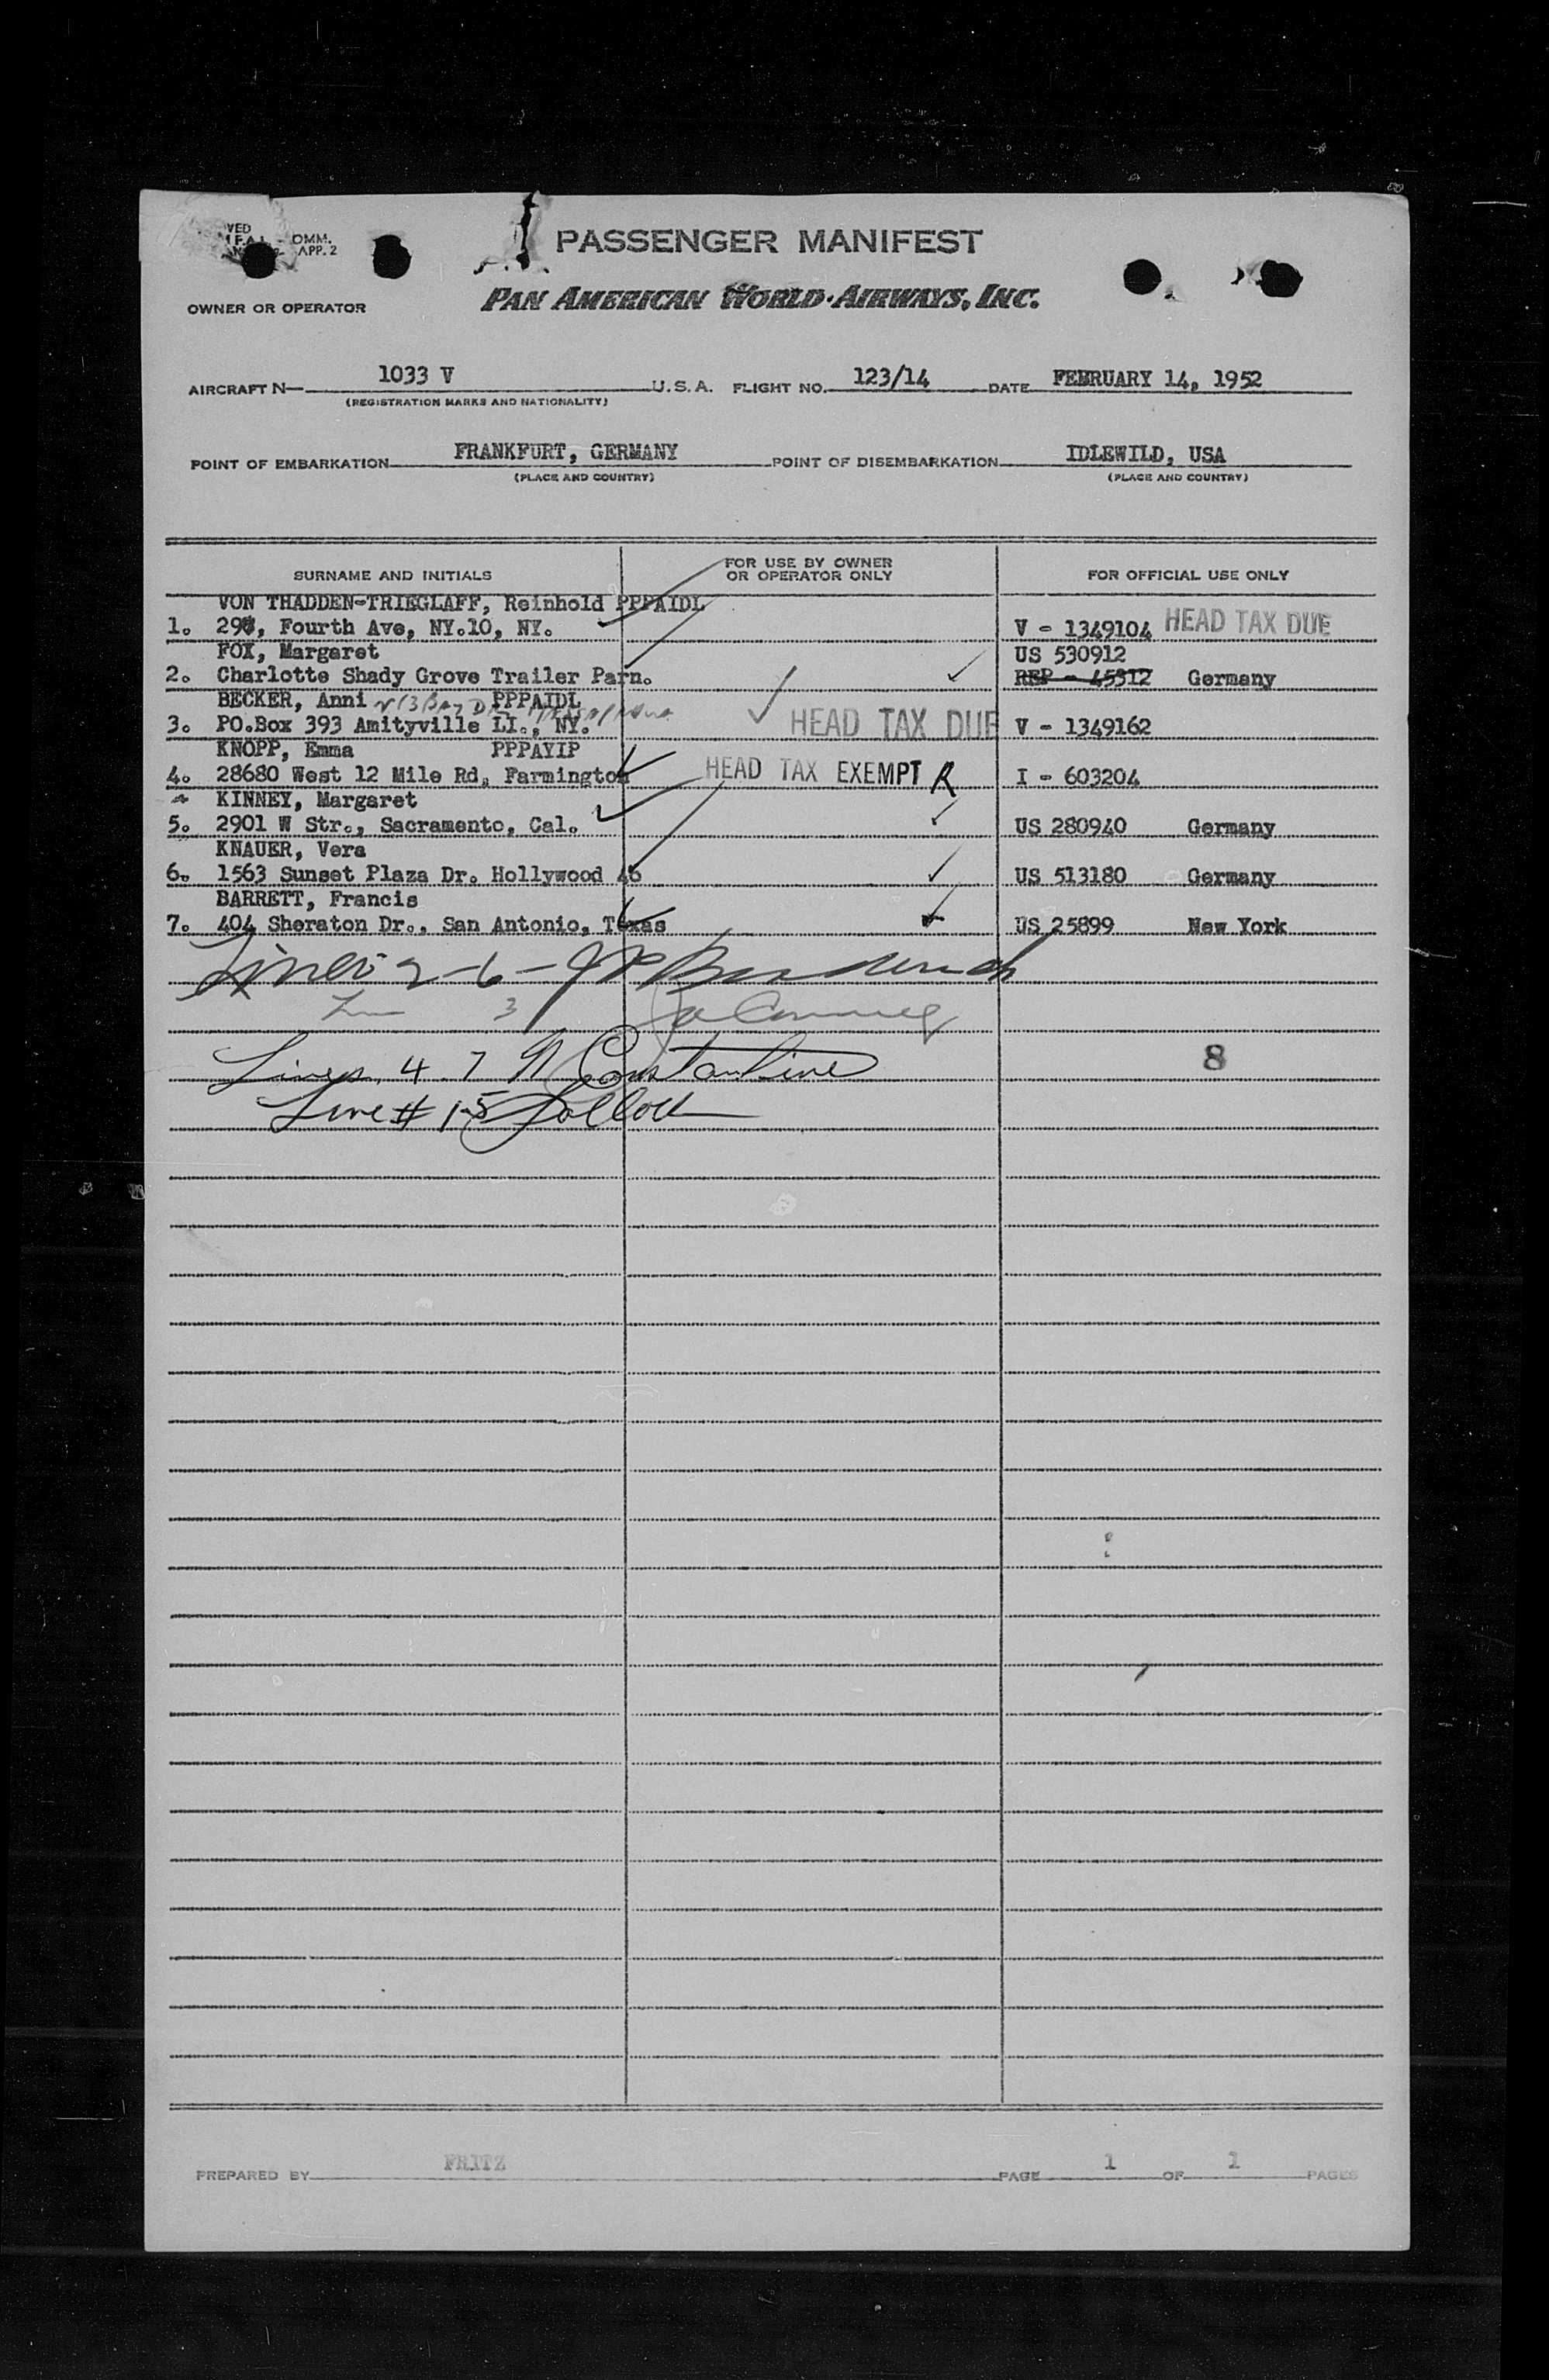 OMM.
APP. 2
PASSENGER MANIFEST
OWNER OR OPERATOR PAN AMERICAN WORLD AIRWAYS, INC.
AIRCRAFT N— 1033 V U.S.A. FLIGHT NO. 123/14 DATE FEBRUARY 14, 1952
(REGISTRATION MARKS AND NATIONALITY)
POINT OF EMBARKATION FRANKFURT, GERMANY POINT OF DISEMBARKATION IDLEWILD, USA
(PLACE AND COUNTRY) (PLACE AND COUNTRY)
SURNAME AND INITIALS FOR USE BY OWNER OR OPERATOR ONLY FOR OFFICIAL USE ONLY
VON THADDEN-TRIEGLAFF, Reinhold PPPAIDL
1. Fourth Ave, NY.10, NY. V - 1349104 HEAD TAX DUE
FOX, Margaret US 530912
2. Charlotte Shady Grove Trailer Parn. REP - 45312 Germany
BECKER, Anni PPPAIDL
3. PO.Box 393 Amityville LI., NY. HEAD TAX DUE V - 1349162
KNOPP, Emma PPPAYIP
4. 28680 West 12 Mile Rd, Farmington HEAD TAX EXEMPT R I - 603204
KINNEY, Margaret
5. 2901 W Str., Sacramento, Cal. US 280940 Germany
KNAUER, Vera
6. 1563 Sunset Plaza Dr. Hollywood 46 US 513180 Germany
BARRETT, Francis
7. 404 Sheraton Dr., San Antonio, Texas US 25899 New York
Lines 2-6-
3
Lines 4 7 N Constantine 8
Line # 1-5
PREPARED BY FRITZ PAGE 1 OF 1 PAGES